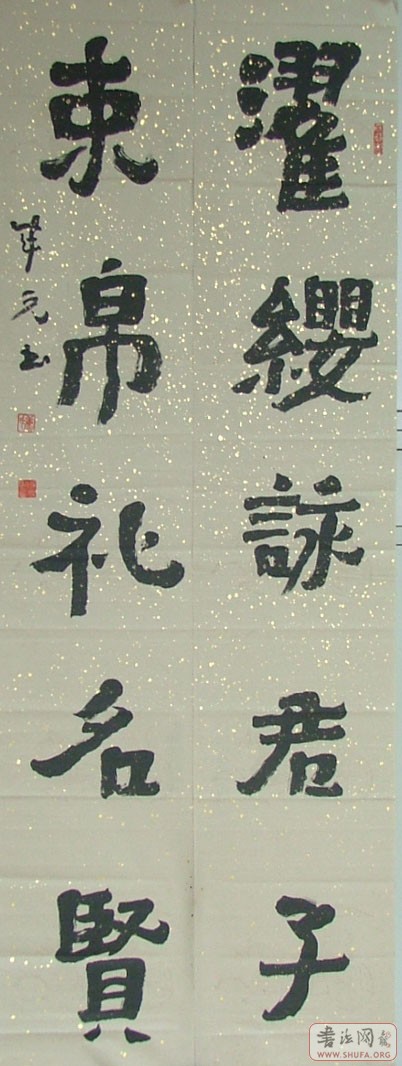 濯纓詠君子
束帛礼名賢
书法网
WWW.SHUFA.ORG